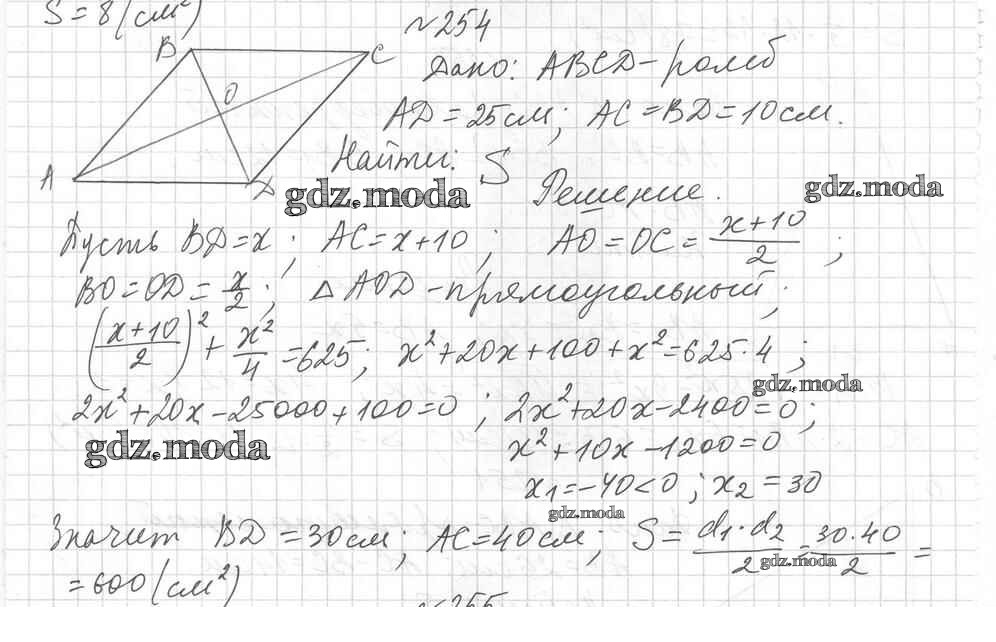 S = 8 (см²)
№254
B
C
O
A
D
Дано: ABCD – ромб
AD = 25 см; AC = BD = 10 см.
Найти: S
Решение.
gdz.moda
gdz.moda
Пусть BD = x; AC = x + 10; AO = OC = (x+10)/2;
BO = OD = x/2; △AOD – прямоугольный;
((x+10)/2)² + x²/4 = 625; x² + 20x + 100 + x² = 625·4;
gdz.moda
2x² + 20x – 25000 + 100 = 0; 2x² + 20x – 2400 = 0;
gdz.moda
x² + 10x – 1200 = 0
x₁ = –40 < 0; x₂ = 30
gdz.moda
Значит BD = 30 см; AC = 40 см; S = d₁·d₂/2 = 30·40/2 =
gdz.moda
= 600 (см²)
№255